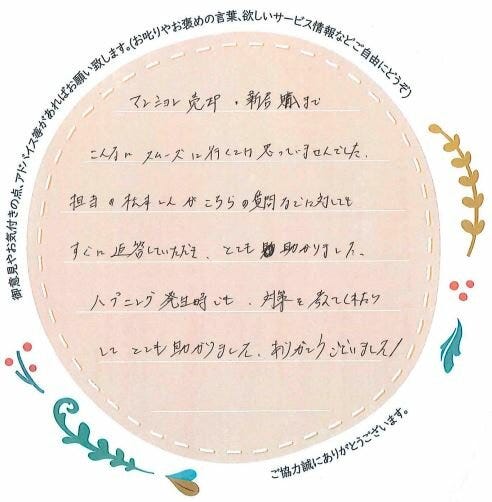 御意見やお気付きの点、アドバイス等があればお願い致します。(お叱りやお褒めの言葉、欲しいサービス情報などご自由にどうぞ)
マンション売却・新居購入まで
こんなにスムーズに行くとは思っていませんでした。
担当の松本さんがこちらの質問などに対しても
すぐに返答していただき、とても助かりました。
ハプニング発生時でも、対策を考えてくれたり
して とても助かりました。ありがとうございました!
ご協力誠にありがとうございます。